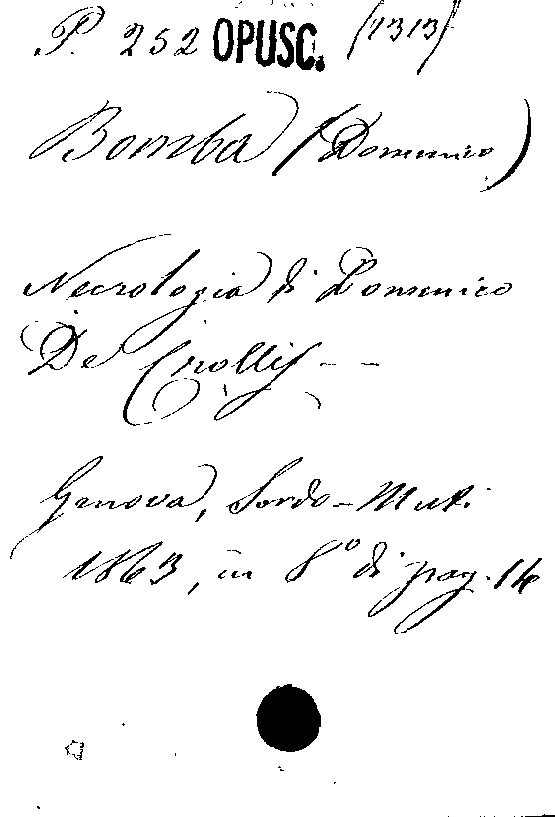 P. 252 OPUSC. (1313)
Bomba (Domenico)
Necrologia di Domenico
De Crollis - -
Genova, Sordo-Muti
1863, in 8º di pag. 14